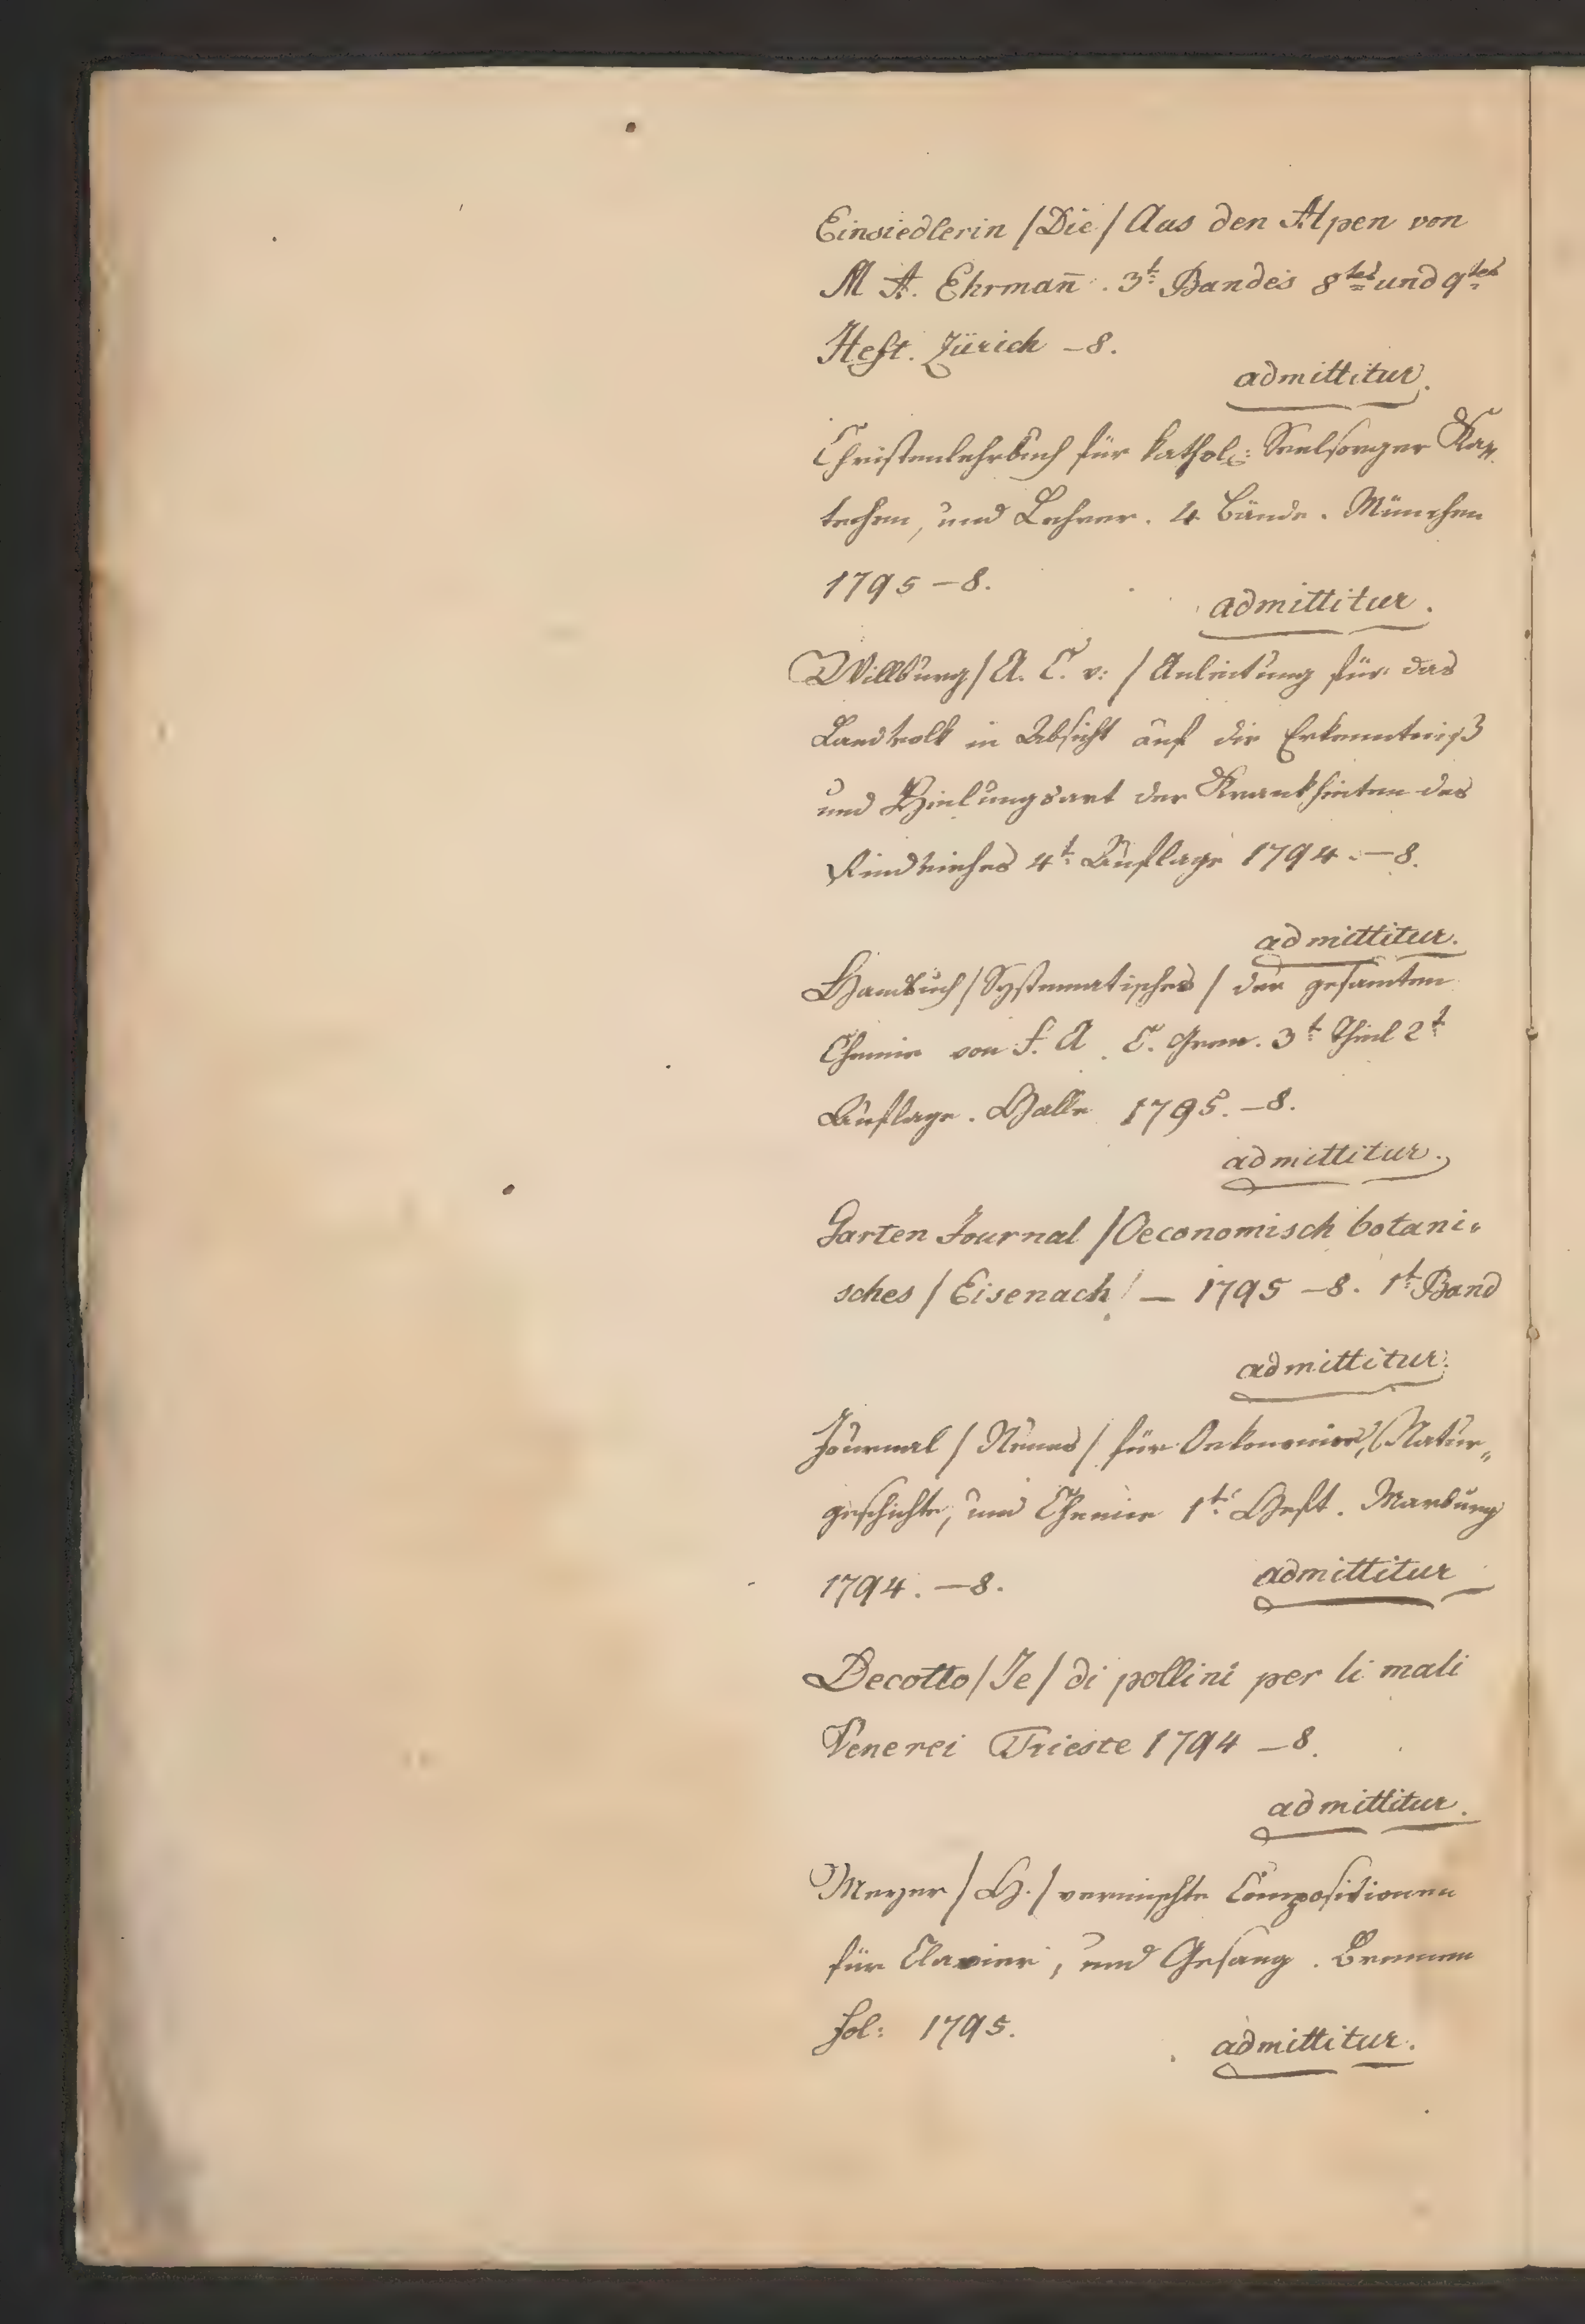 Einsiedlerin /Die/ Aus den Alpen von
M A. Ehrman̄. 3t: Bandes 8tes und 9tes
Heft. Zürich – 8.
admittitur.
Christenlehrbuch für kathol: Seelsorger Ka„
techen, und Lehrer. 4 Bände. München
1795 – 8.
admittitur.
Willburg /A. C. v:/ Anleitung für das
Landvolk in Absicht auf die Erkenntniß
und Heilungsart der Krankheiten des
Rindviehes 4t: Auflage 1794. – 8.
admittitur.
Handbuch /Systematisches/ der gesamten
Chemie von F. A. C. Gren. 3t: Theil 2t:
Auflage. Halle 1795. – 8.
admittitur.
Garten Journal /Oeconomisch botani„
sches/ Eisenach – 1795 – 8. 1t: Band
admittitur.
Journal /Neues/ für Oekonomie, Natur„
geschichte, und Chemie 1tes Heft. Marburg
1794. – 8.
admittitur
Decotto /Je/ di pollini per li mali
Venerei Trieste 1794 – 8.
admittitur.
Meyer /H./ vermischte Compositionen
für Clavier, und Gesang. Bremen
fol: 1795.
admittitur.